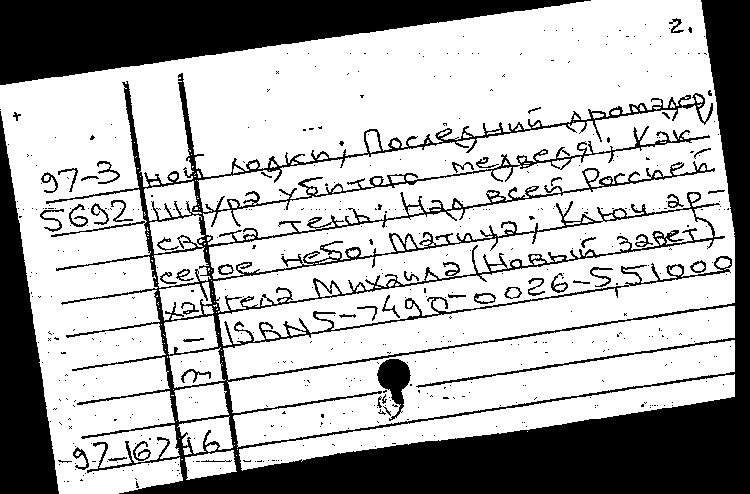 2.
97-3 ной лодки; Последний дромадер;
5692 Шкура убитого медведя; Как
света тень; Над всей Россией
серое небо; Матица; Ключ ар-
хангела Михаила (Новый завет)
.- ISBN 5-7490-0026-5, 51000
97-16746